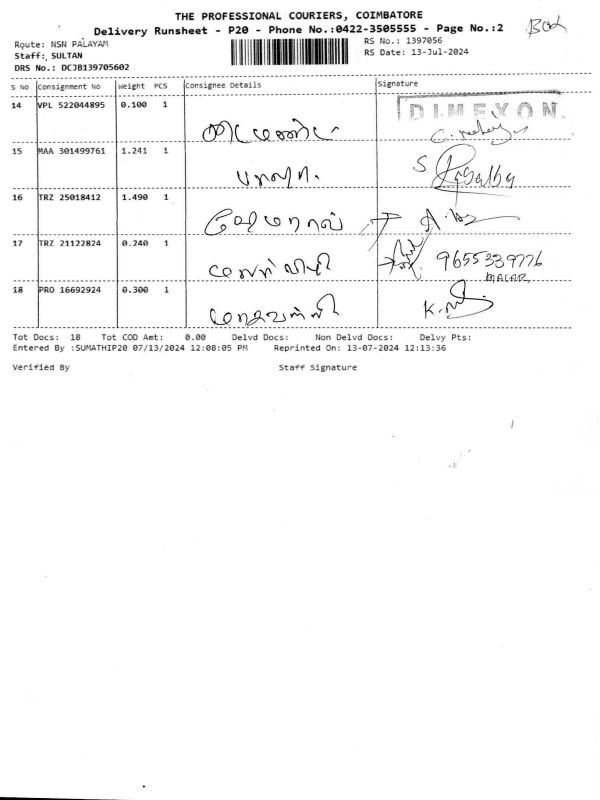 THE PROFESSIONAL COURIERS, COIMBATORE
Delivery Runsheet - P20 - Phone No.:0422-3505555 - Page No.:2
Route: NSN PALAYAM
RS No.: 1397056
Staff: SULTAN
RS Date: 13-Jul-2024
DRS No.: DCJB139705602
S No Consignment No Weight PCS Consignee Details Signature
14 VPL 522044895 0.100 1 DIMEXON
15 MAA 301499761 1.241 1
16 TRZ 25018412 1.490 1
17 TRZ 21122824 0.240 1 மலர்விழி 9655339776
MALAR
18 PRO 16692924 0.300 1
Tot Docs: 18 Tot COD Amt: 0.00 Delvd Docs: Non Delvd Docs: Delvy Pts:
Entered By :SUMATHIP20 07/13/2024 12:08:05 PM Reprinted On: 13-07-2024 12:13:36
Verified By Staff Signature